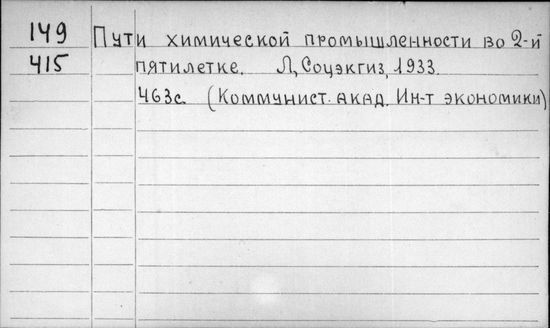 149 Пути химической промышленности во 2-й
415 пятилетке. Л, Соцэкгиз, 1933.
463с. (Коммунист. акад. Ин-т экономики)